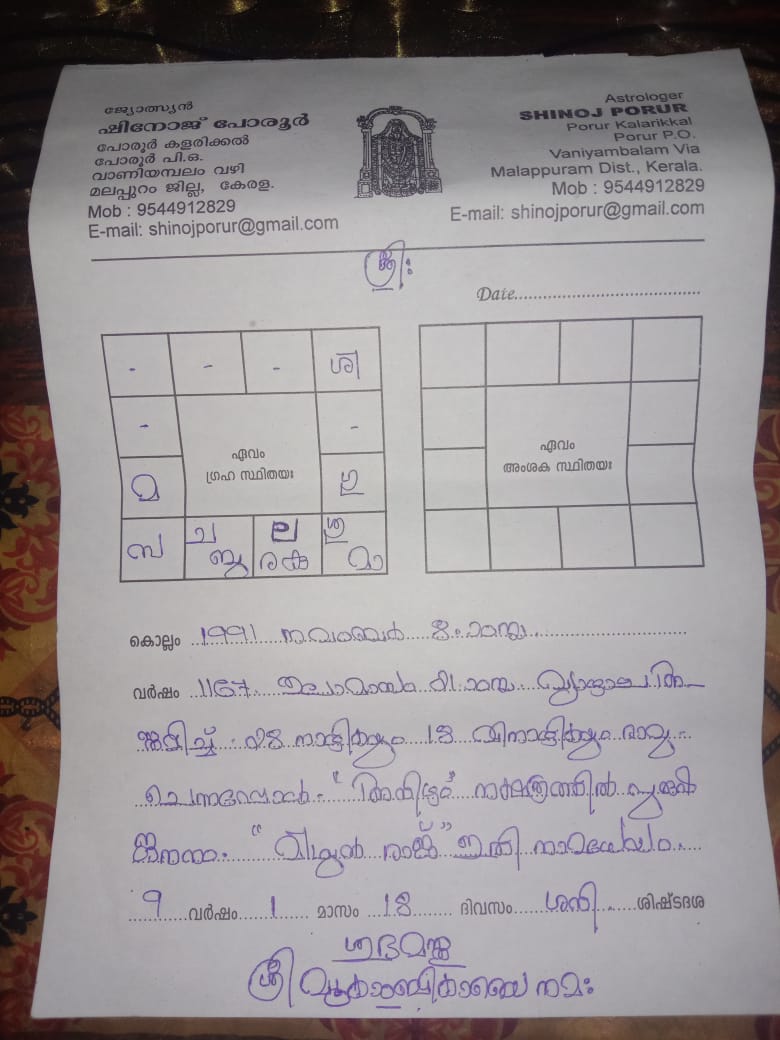 ജ്യോത്സ്യൻ
ഷിനോജ് പോരൂർ
പോരൂർ കളരിക്കൽ
പോരൂർ പി.ഒ.
വാണിയമ്പലം വഴി
മലപ്പുറം ജില്ല, കേരള.
Mob : 9544912829
E-mail: shinojporur@gmail.com
Astrologer
SHINOJ PORUR
Porur Kalarikkal
Porur P.O.
Vaniyambalam Via
Malappuram Dist., Kerala.
Mob : 9544912829
E-mail: shinojporur@gmail.com
ശ്രീഃ
Date
- - - ശി
- -
ഏവം
ഗ്രഹ സ്ഥിതയഃ
മ ഗു
സ ച ബു ല ര കു ശു മാ
ഏവം
അംശക സ്ഥിതയഃ
കൊല്ലം 1991 നവംബർ 8
വർഷം 1167
ജനിച്ച് 28 നാഴികയും 18 വിനാഴികയും രാവു
നക്ഷത്രത്തിൽ
ജനനം. രാജ്" ഇതി നാമധേയം.
9 വർഷം 1 മാസം 18 ദിവസം ശനി ശിഷ്ടദശ
ശുഭമസ്തു
ശ്രീ മൂകാംബികായൈ നമഃ